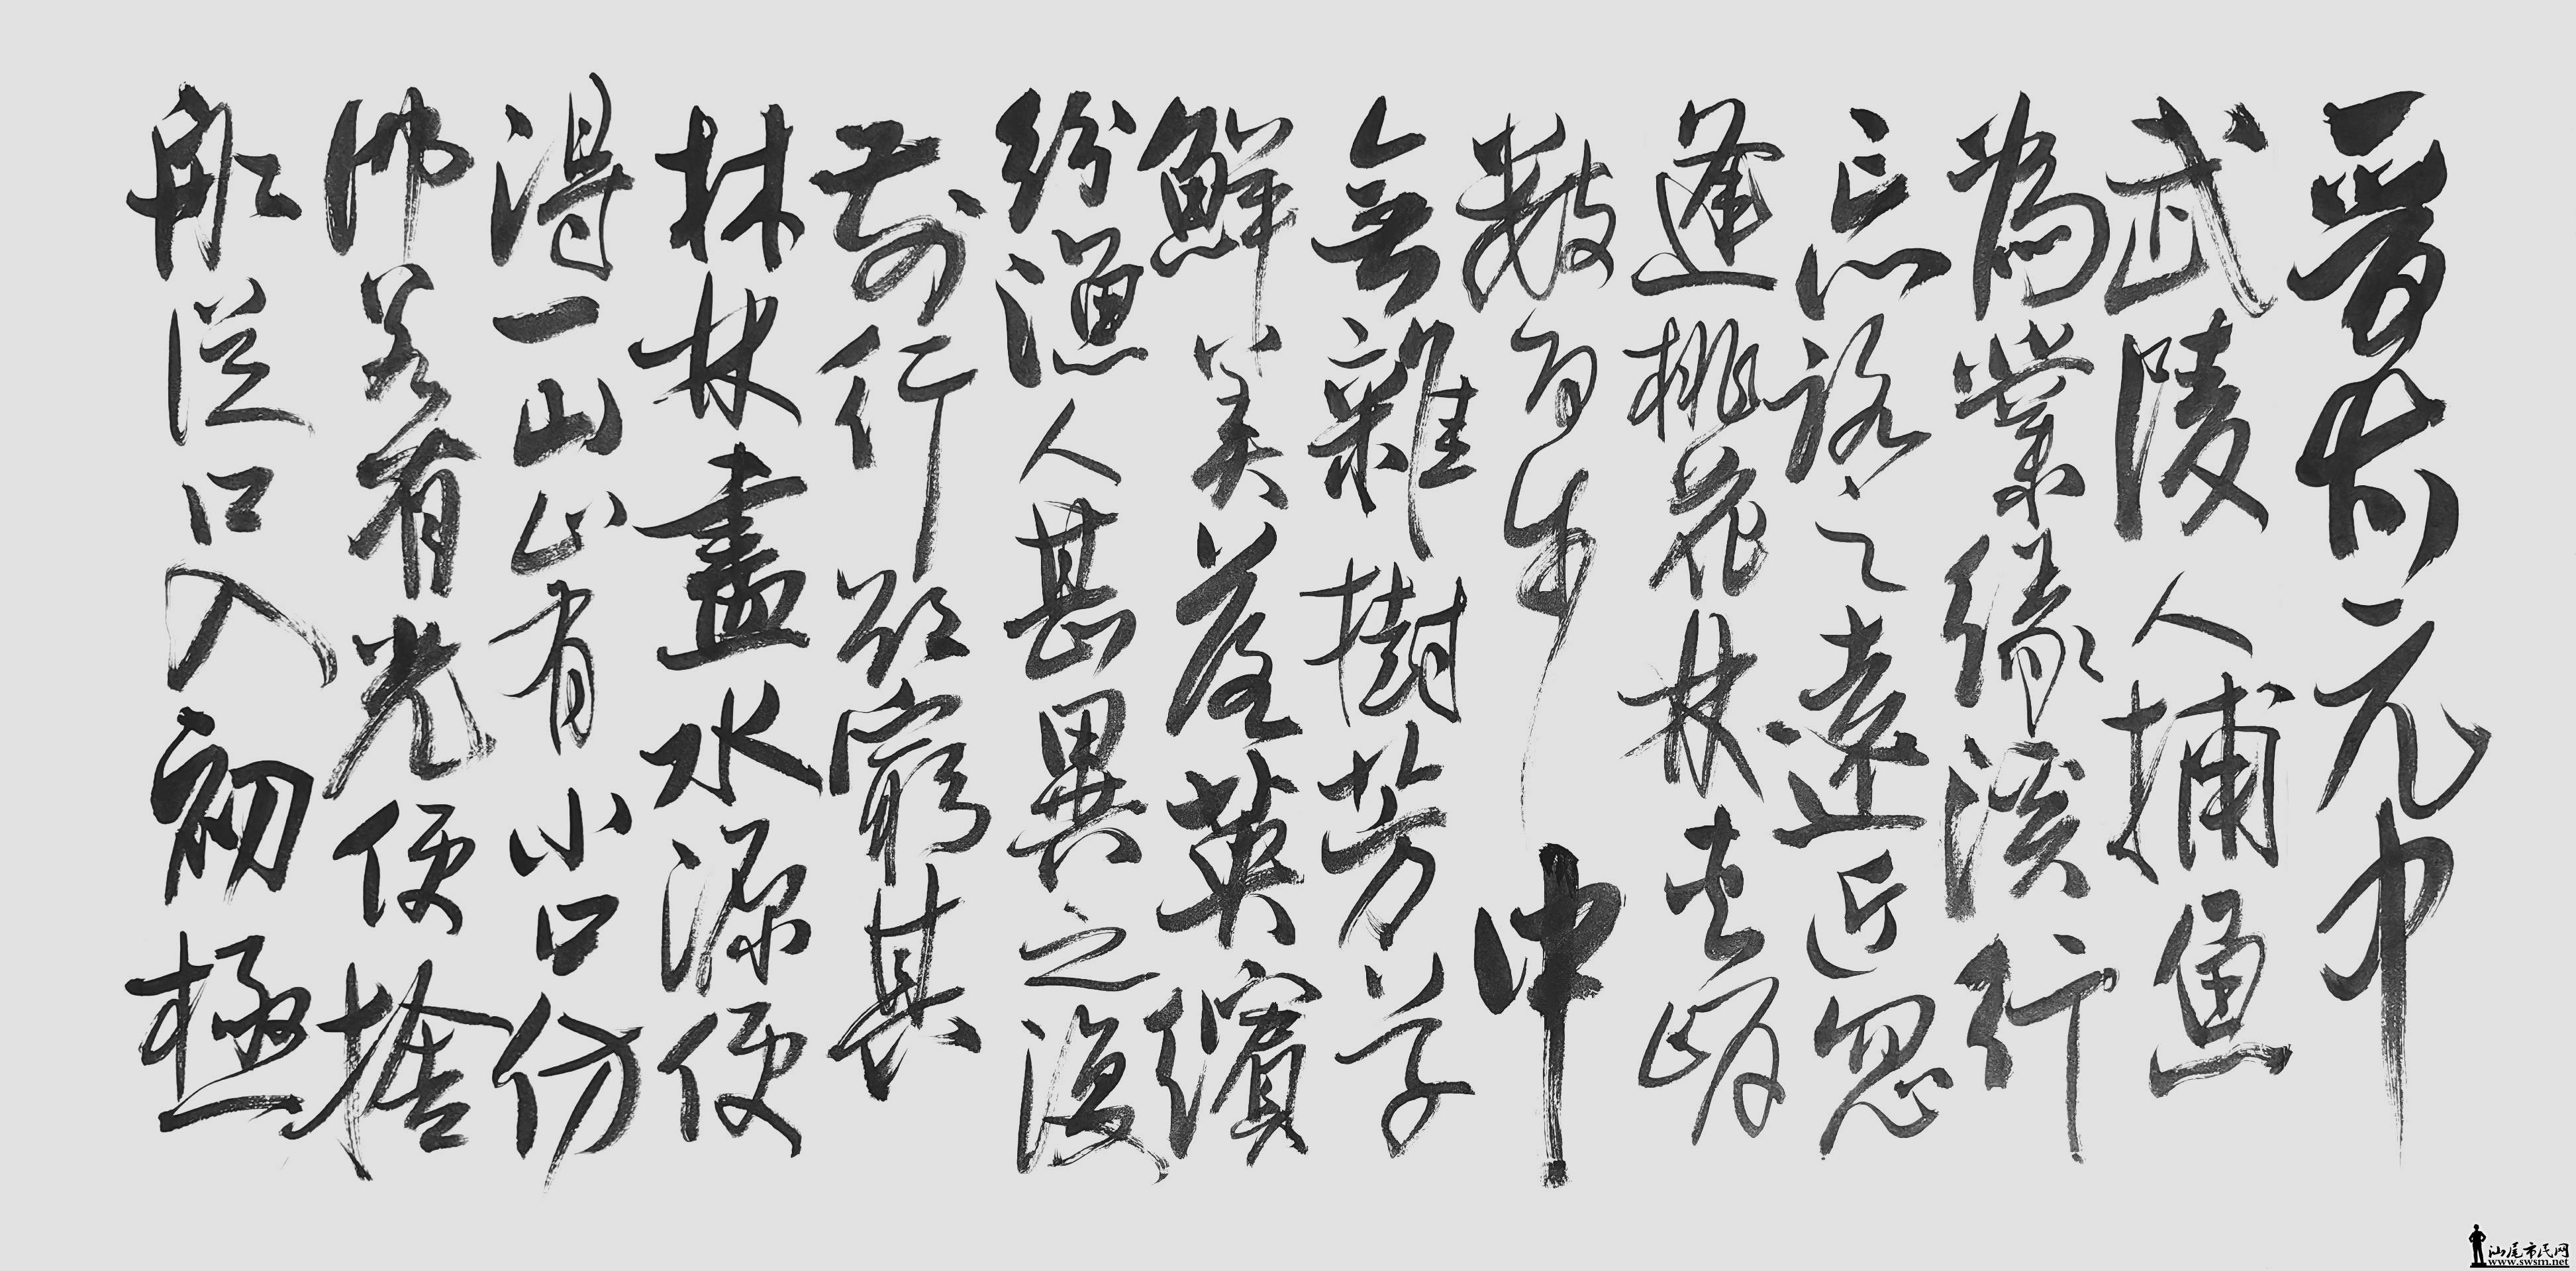 晉太元中
武陵人捕魚
為業緣溪行
忘路之遠近忽
逢桃花林夾岸
數百步中
無雜樹芳草
鮮美落英繽
紛漁人甚異之復
前行欲窮其
林林盡水源便
得一山山有小口仿
佛若有光便捨
船從口入初極
汕尾市民网
www.swsm.net